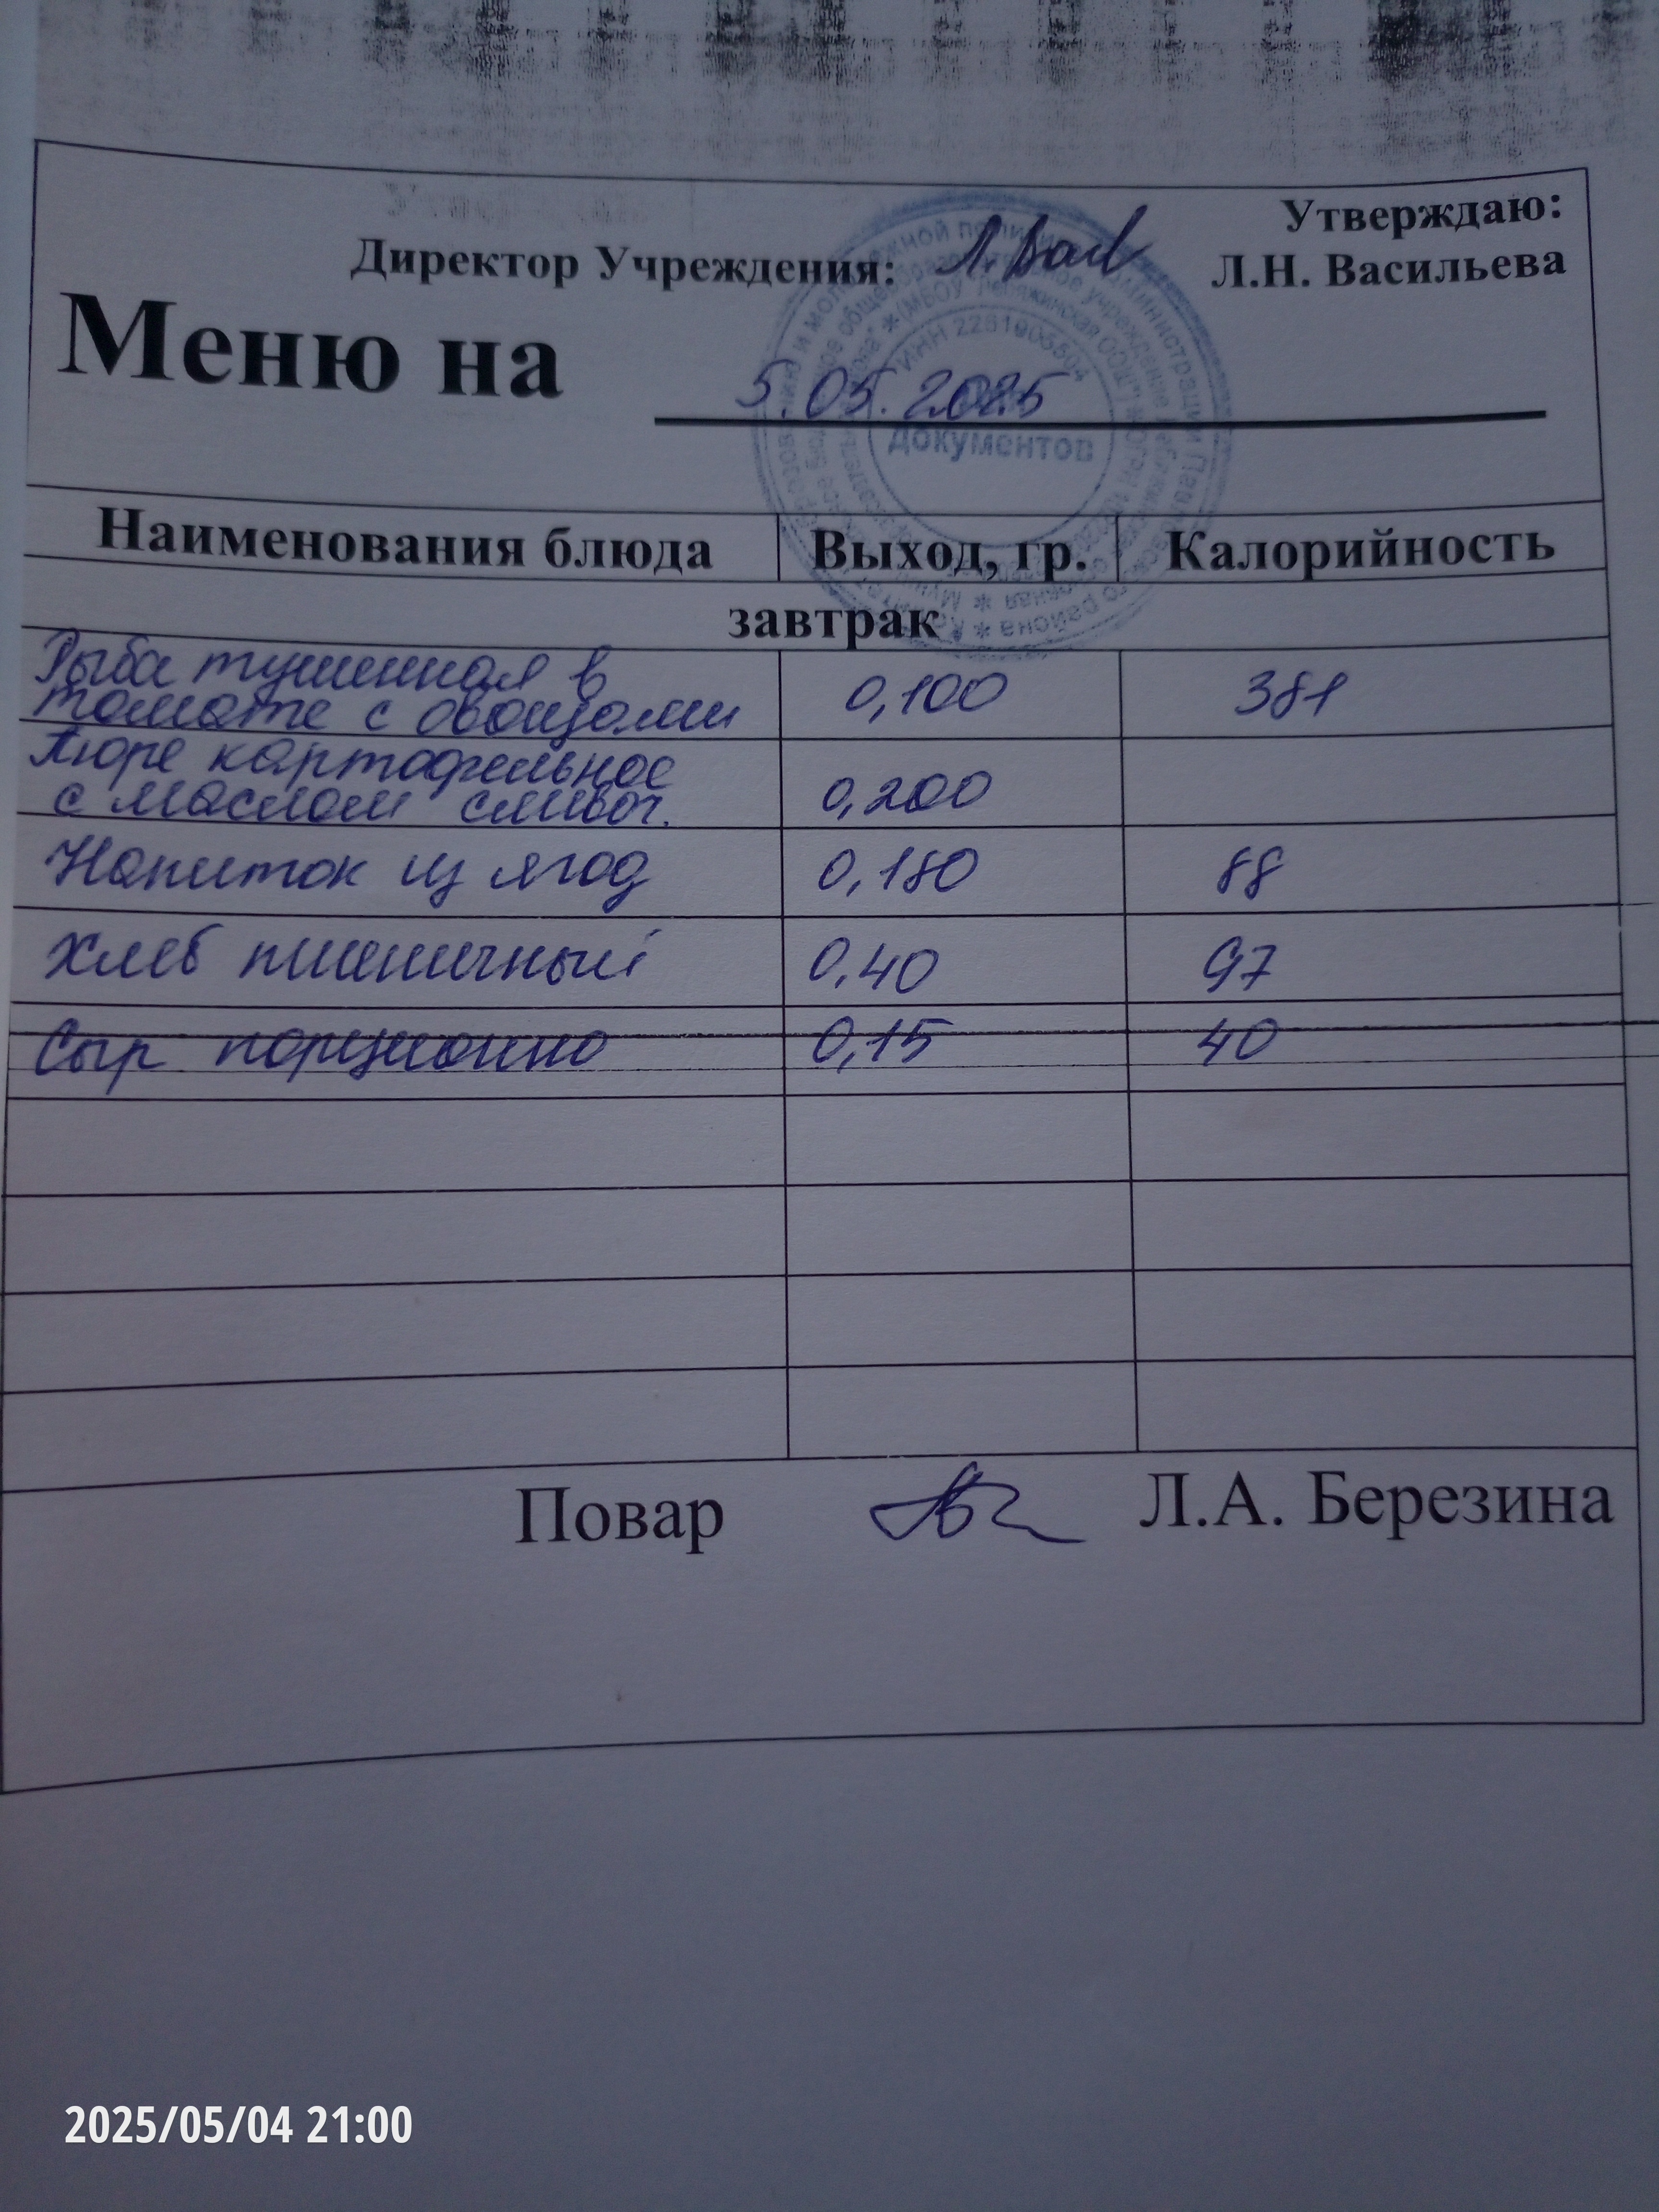 Утверждаю:
Директор Учреждения: Л.Н. Васильева
Меню на
5.05.2025
ИНН 2261006504
документов
Наименования блюда Выход, гр. Калорийность
завтрак
Рыба тушенная в
томате с овощами 0,100 381
Пюре картофельное
с маслом сливоч. 0,200
Напиток из ягод 0,180 88
Хлеб пшеничный 0,40 97
Сыр порционно 0,15 40
Повар Л.А. Березина
2025/05/04 21:00